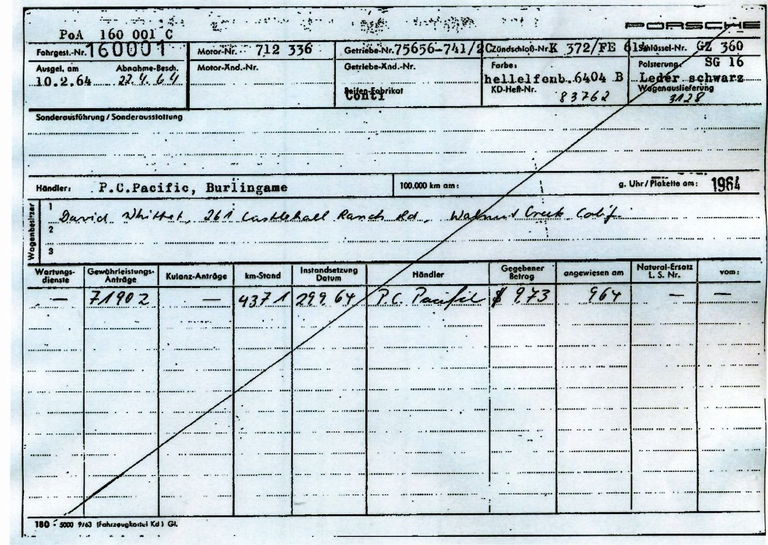 PoA 160 001 C PORSCHE
Fahrgest.-Nr. 160001 Motor-Nr. 712 336 Getriebe-Nr. 75656-741/2C Zündschloß-Nr. K 372/FE 61 Schlüssel-Nr. GZ 360
Ausgel. am Abnahme-Besch. Motor-Änd.-Nr. Getriebe-Änd.-Nr. Farbe: Polsterung: SG 16
10.2.64 22.4.64 Reifen-Fabrikat hellelfenb. 6404 B Leder schwarz
Conti KD-Heft-Nr. 83762 Wagenauslieferung 3128
Sonderausführung / Sonderausstattung
Händler: P.C.Pacific, Burlingame 100.000 km am: g. Uhr/Plakette am: 1964
Wagenbesitzer
1 David 261 Ranch Rd, Walnut Creek Calif.
2
3
Wartungs-dienste Gewährleistungs-Anträge Kulanz-Anträge km-Stand Instandsetzung Datum Händler Gegebener Betrag angewiesen am Natural-Ersatz L. S. Nr. vom:
— 71902 — 4371 29964 P.C. Pacific $ 9,73 964 — —
180 - 5000 9/63 (Fahrzeugkartei Kd) Gl.